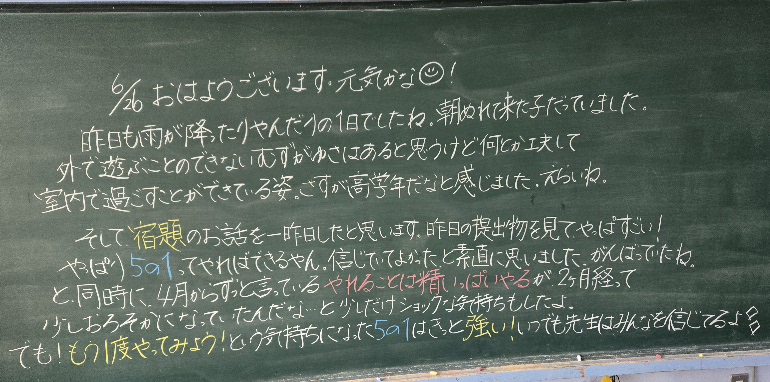 6/26 おはようございます。元気かな☺！
昨日も雨が降ったりやんだりの1日でしたね。朝ぬれて来た子だっていました。
外で遊ぶことのできないむずがゆさはあると思うけど何とか工夫して
室内で過ごすことができている姿。さすが高学年だなと感じました。えらいね。
そして宿題のお話を一昨日したと思います。昨日の提出物を見てやっぱすごい！
やっぱり5の1ってやればできるやん。信じていてよかったと素直に思いました。がんばっていたね。
と、同時に、4月からずっと言っているやれることは精いっぱいやるが2ヶ月経って
少しおろそかになっていたんだな…と少しだけショックな気持ちもしたよ。
でも！もう1度やってみよう！という気持ちになった5の1はきっと強い！いつでも先生はみんなを信じてるよ